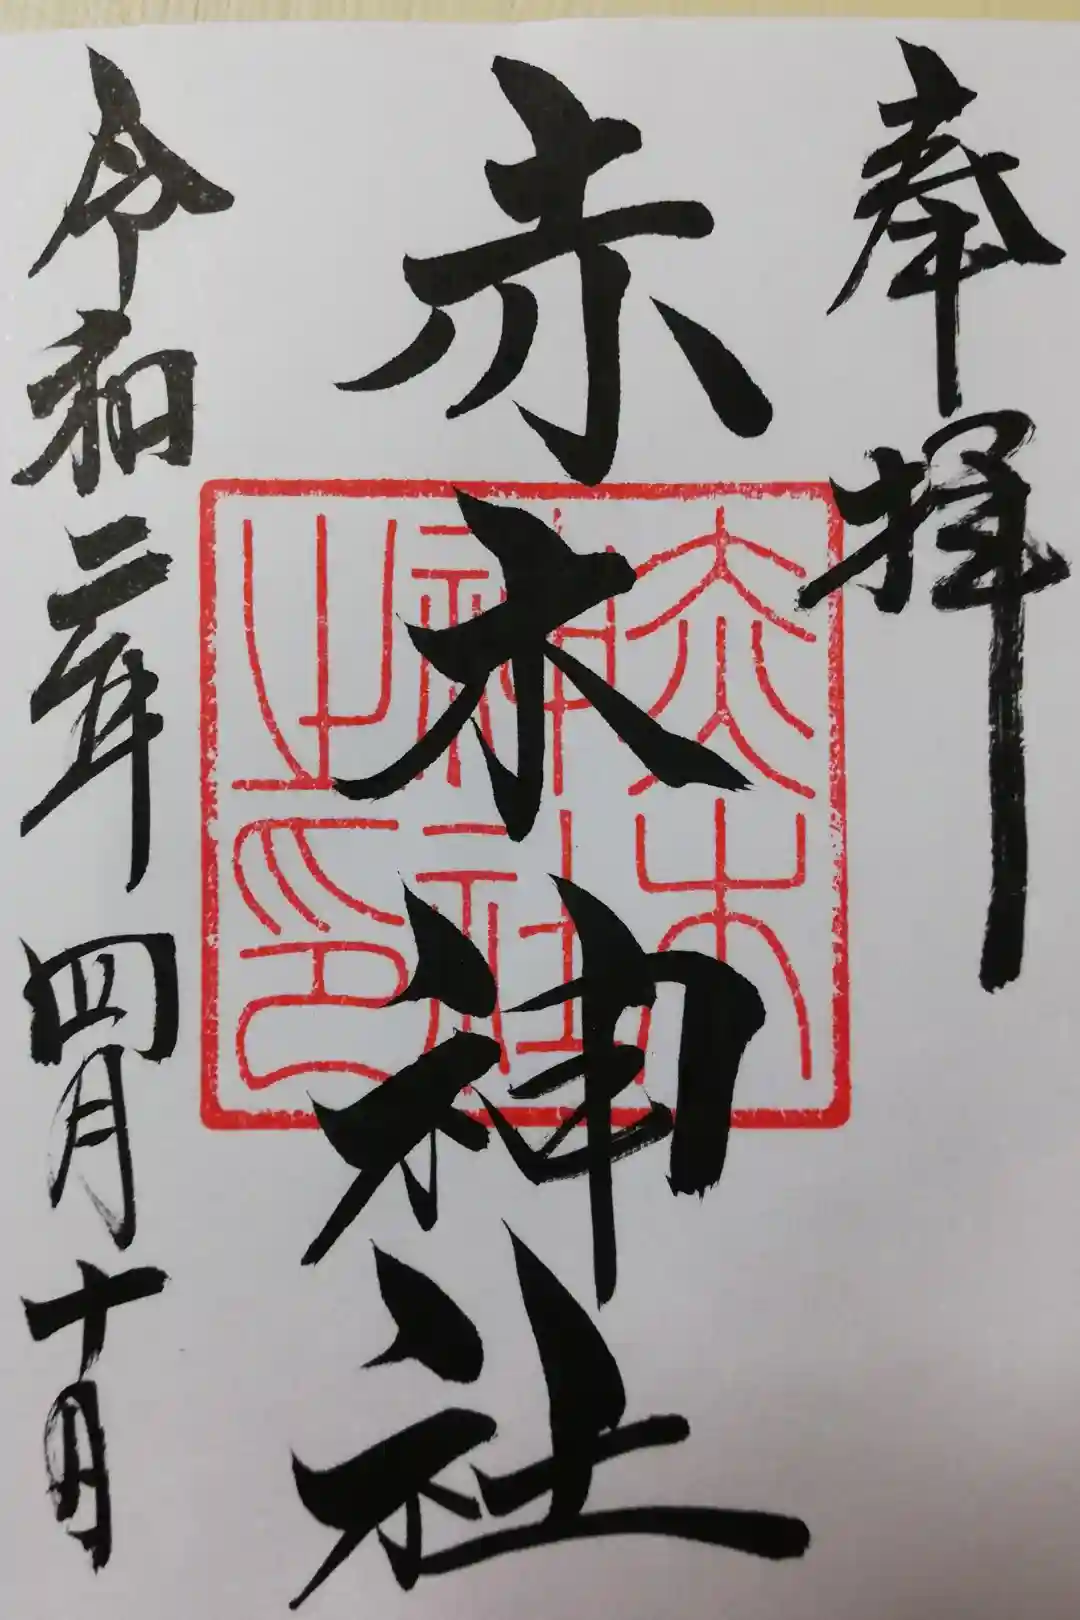 奉拝
赤木神社
赤木
神社
之印
令和二年四月十日